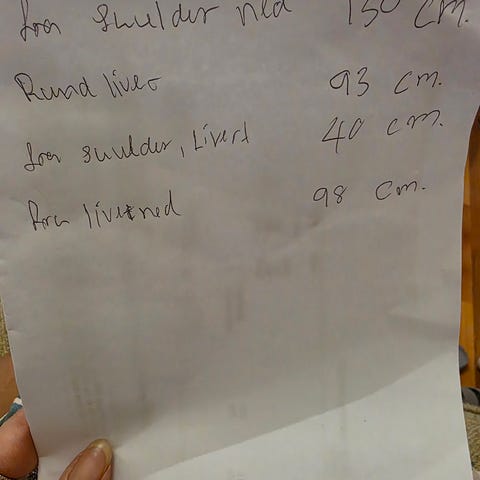 fron shoulder ned 130 cm.
Rund livet 93 cm.
fron shoulder, Livet 40 cm.
fron livet ned 98 cm.